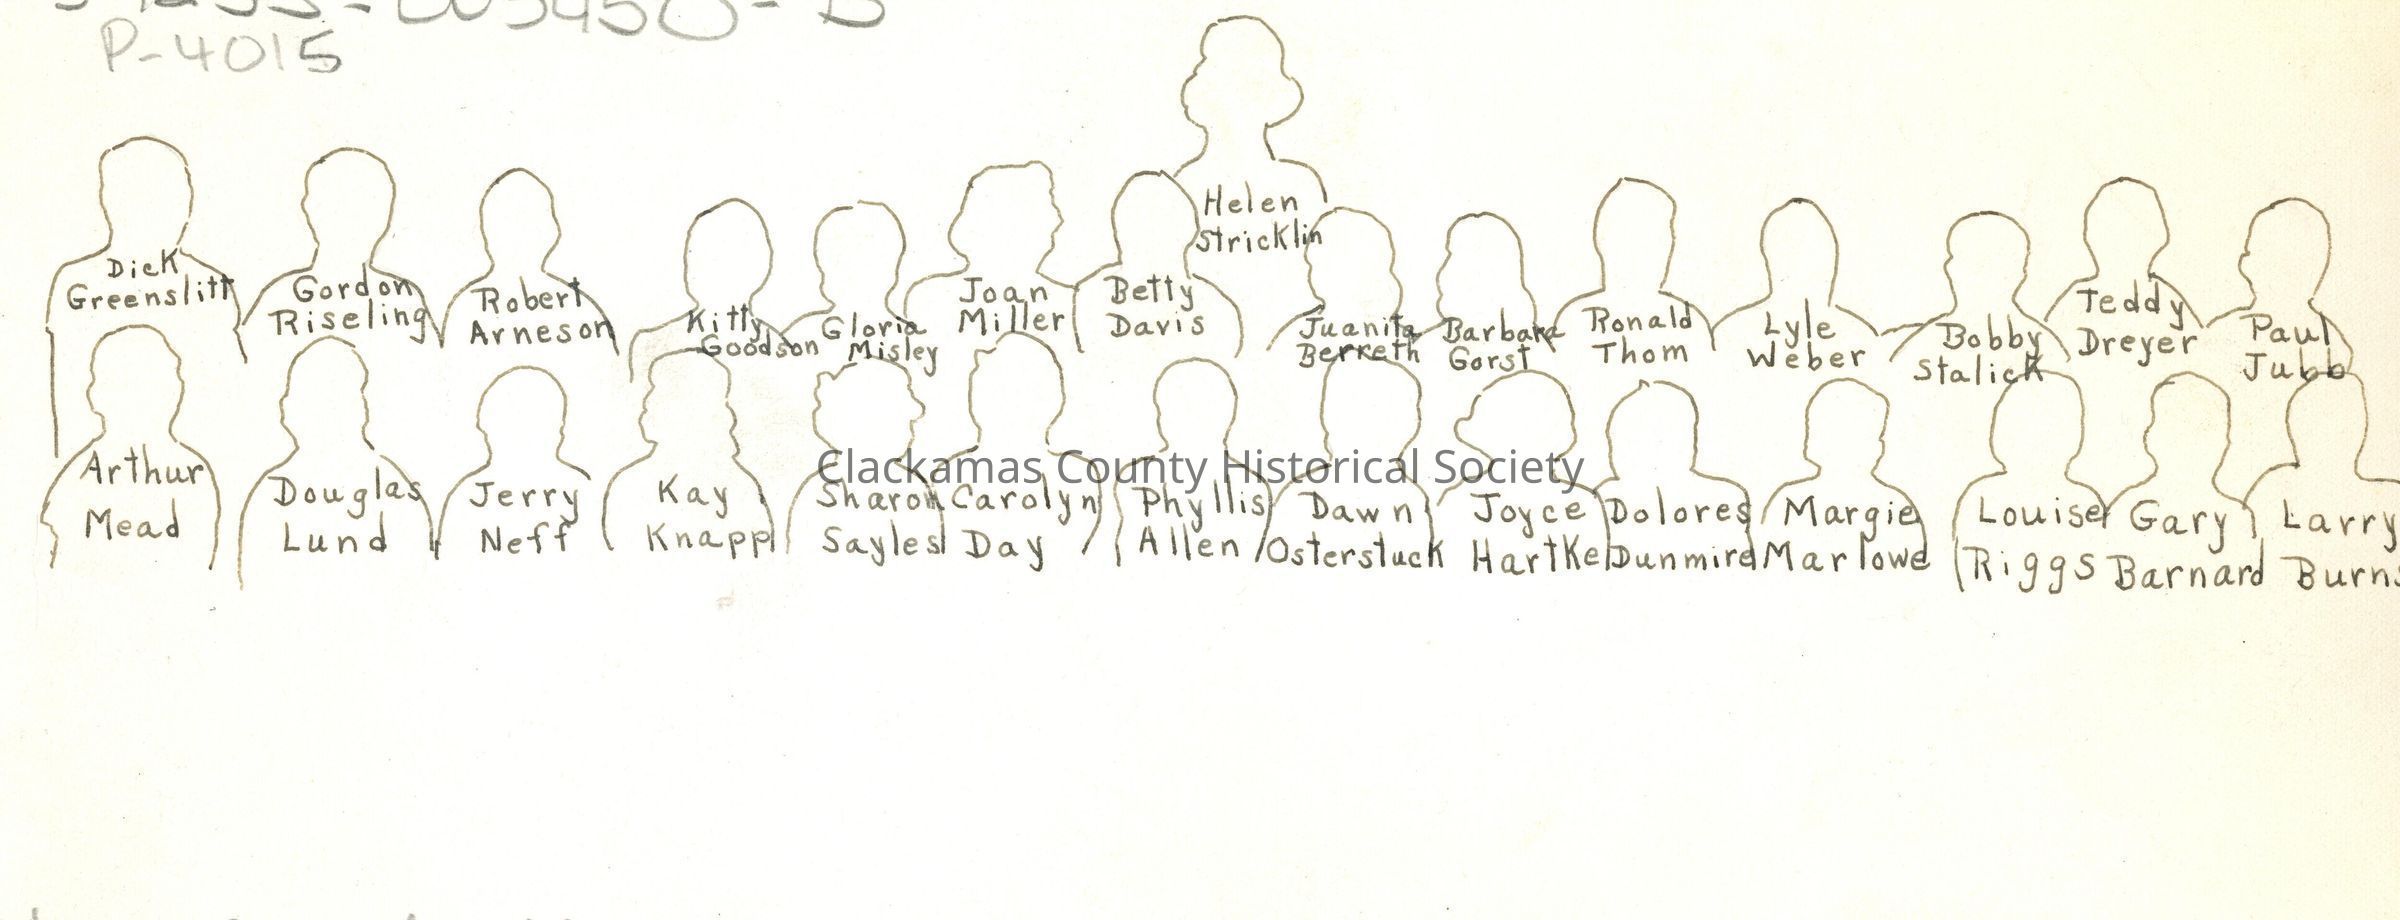 P-4015
Helen
Stricklin
Dick
Greenslitt
Gordon
Riseling
Robert
Arneson
Kitty
Goodson
Gloria
Misley
Joan
Miller
Betty
Davis
Juanita
Berreth
Barbara
Gorst
Ronald
Thom
Lyle
Weber
Bobby
Stalick
Teddy
Dreyer
Paul
Jubb
Clackamas County Historical Society
Arthur
Mead
Douglas
Lund
Jerry
Neff
Kay
Knapp
Sharon
Sayles
Carolyn
Day
Phyllis
Allen
Dawn
Osterstuck
Joyce
Hartke
Dolores
Dunmire
Margie
Marlowe
Louise
Riggs
Gary
Barnard
Larry
Burns